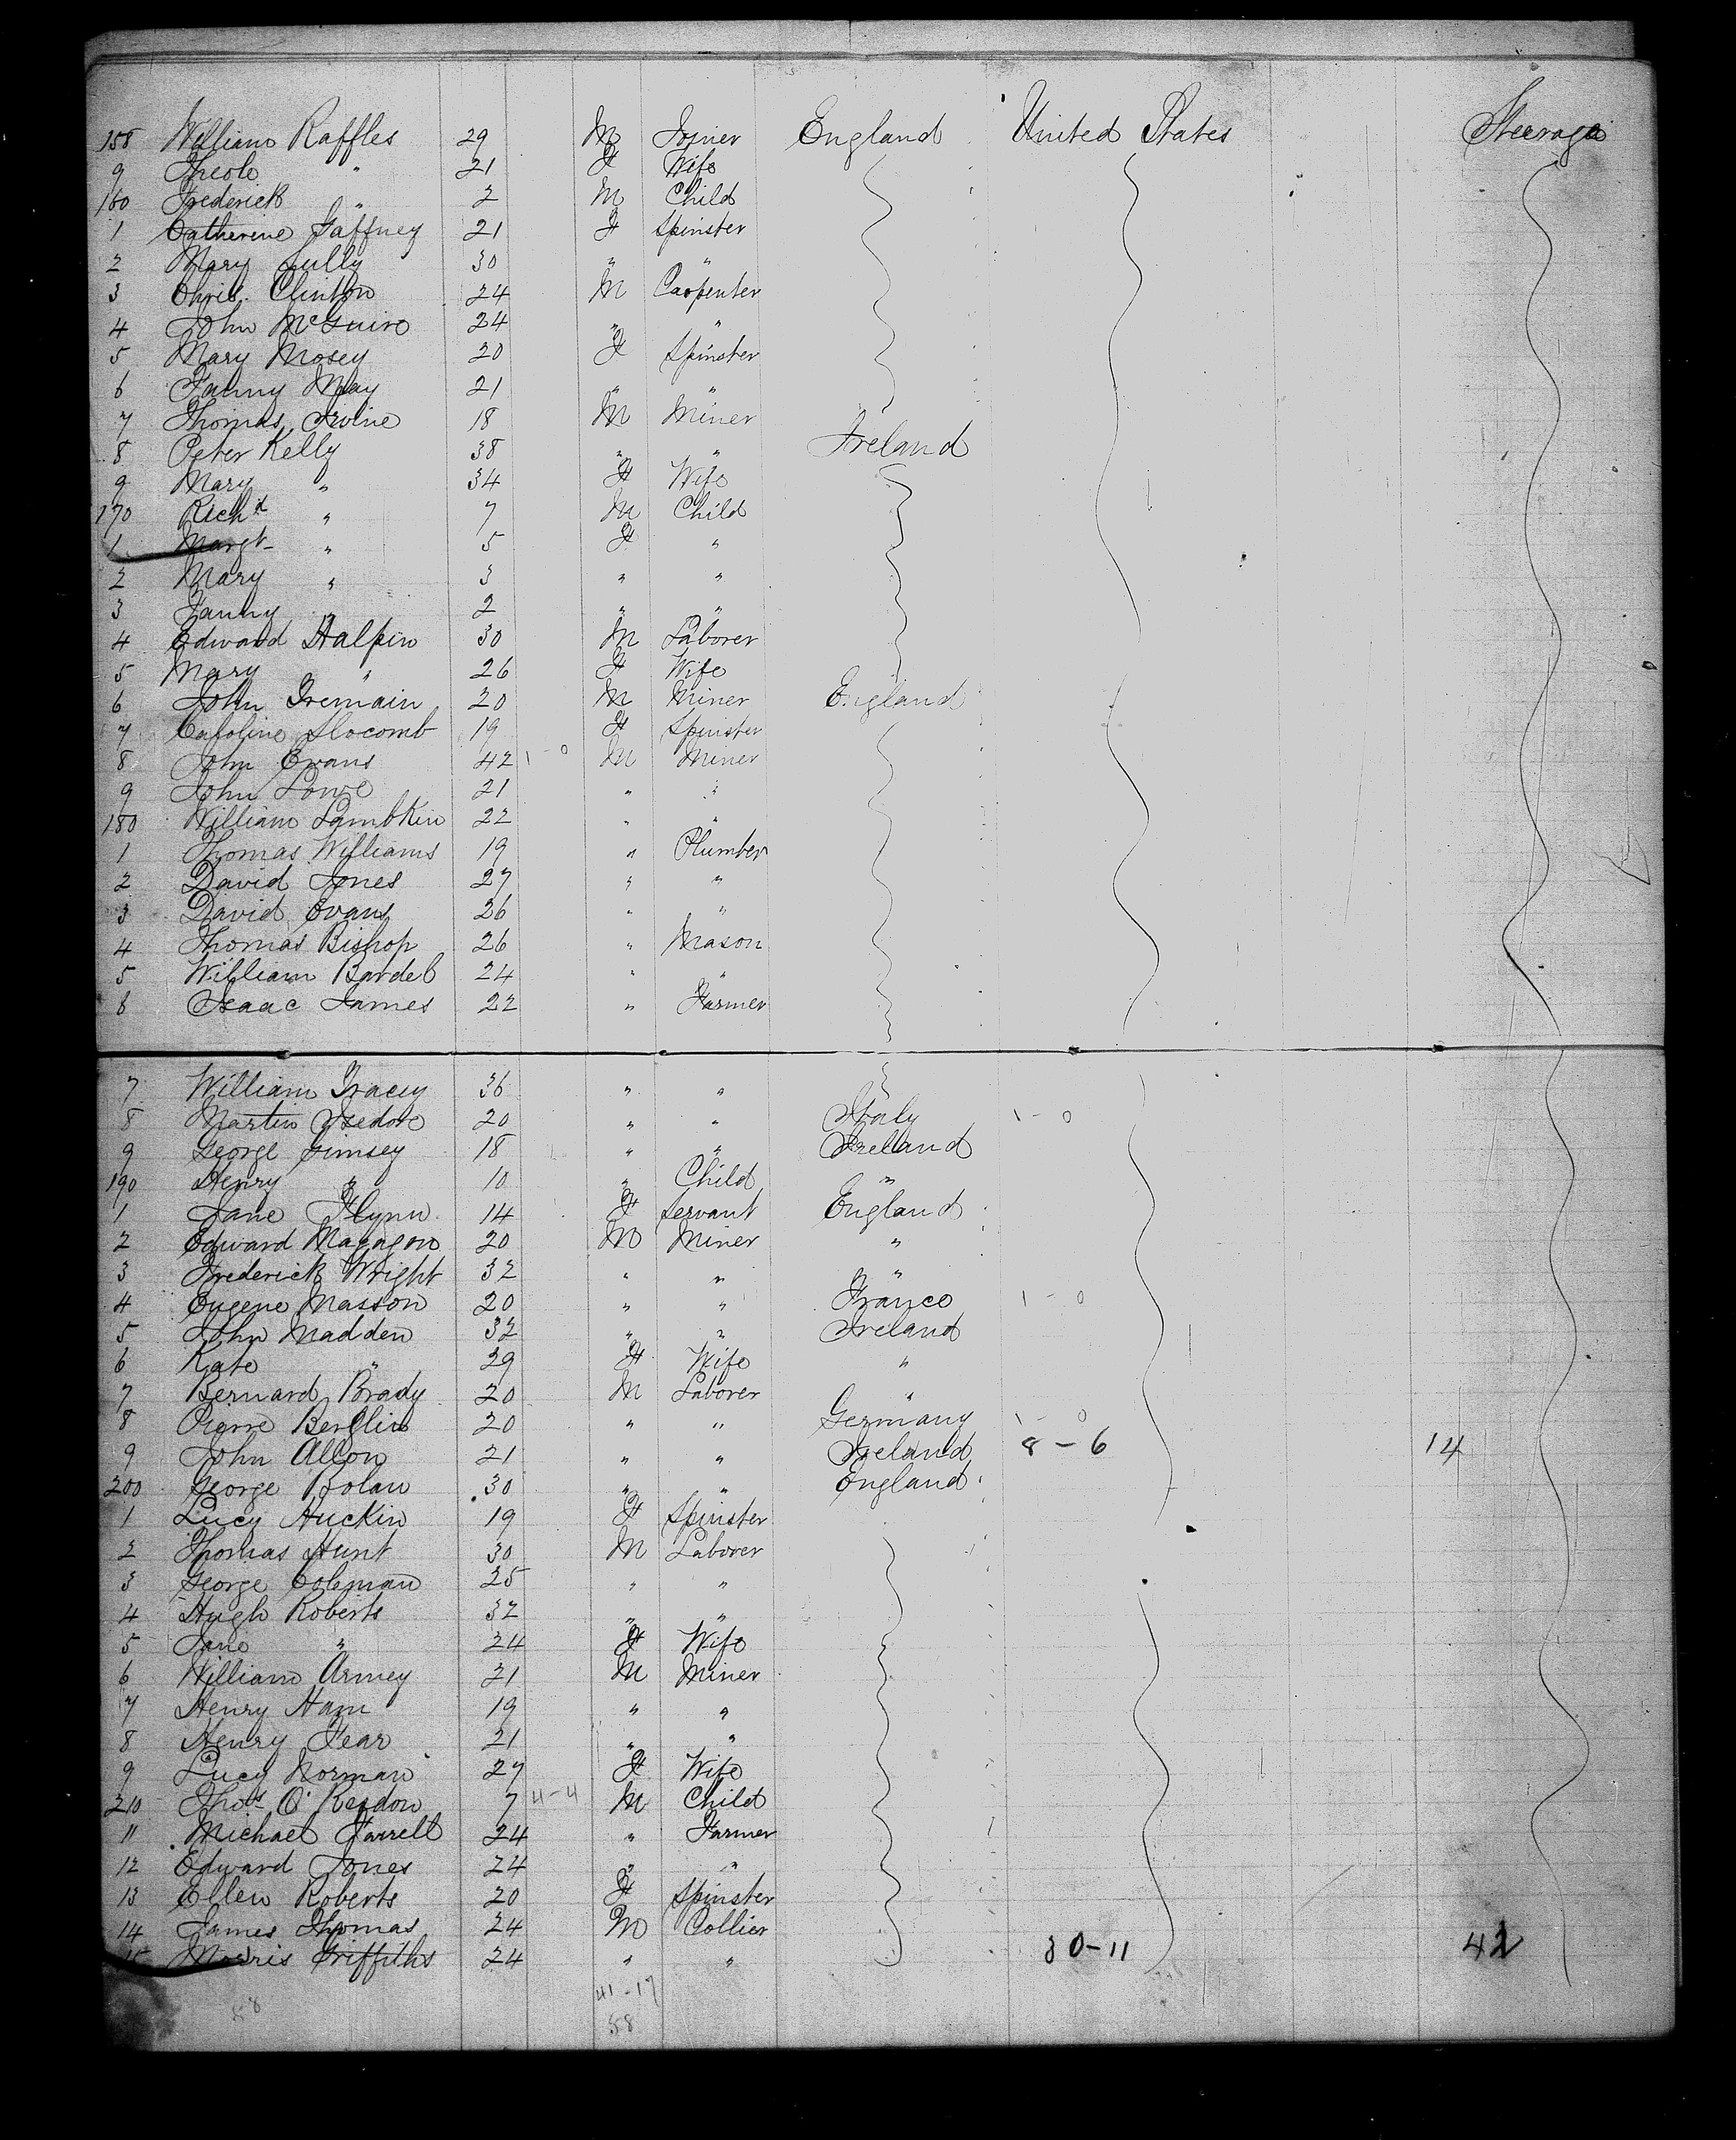 158 William Raffles 29 M Joiner England United States Steerage
9 " 21 F Wife
160 Frederick " 2 M Child
1 Catherine Gaffney 21 F Spinster
2 Mary Lully 30 " "
3 Chris. Clinton 24 M Carpenter
4 John McGuire 24 " "
5 Mary Mosey 20 F Spinster
6 Fanny May 21 " "
7 Thomas Irvine 18 M Miner
8 Peter Kelly 38 " " Ireland
9 Mary " 34 F Wife
170 Richd " 7 M Child
1 Margt " 5 F "
2 Mary " 3 " "
3 Fanny " 2 " "
4 Edward Halpin 30 M Laborer
5 Mary " 26 F Wife
6 John Tremain 20 M Miner England
7 Caroline Slocomb 19 F Spinster
8 John Evans 42 1-0 M Miner
9 John Lowe 21 " "
180 William Lambkin 22 " "
1 Thomas Williams 19 " Plumber
2 David Jones 27 " "
3 David Evans 26 " "
4 Thomas Bishop 26 " Mason
5 William Bardel 24 " "
6 Isaac James 22 " Farmer
7 William Tracey 36 " "
8 Martin Isedore 20 " " Italy 1-0
9 George Jimsey 18 " " Ireland
190 Henry " 10 " Child "
1 Jane Flynn 14 F Servant England
2 Edward 20 M Miner "
3 Frederick Wright 32 " " "
4 Eugene Masson 20 " " France 1-0
5 John Madden 32 " " Ireland
6 Kate " 29 F Wife "
7 Bernard Brady 20 M Laborer "
8 Pierre 20 " " Germany 1-0
9 John Allon 21 " " Ireland 8-6 14
200 George Bolan 30 " " England
1 Lucy Huckin 19 F Spinster
2 Thomas Hunt 30 M Laborer
3 George Coleman 25 " "
4 Hugh Roberts 32 " "
5 Jane " 24 F Wife
6 William Armey 21 M Miner
7 Henry Ham 19 " "
8 Henry Fear 21 " "
9 Lucy Norman 27 F Wife
210 Thos O' 7 4-4 M Child
11 Michael Farrell 24 " Farmer
12 Edward Jones 24 " "
13 Ellen Roberts 20 F Spinster
14 James Thomas 24 M Collier
15 Morris Griffiths 24 " " 30-11 42
41-17
58 58